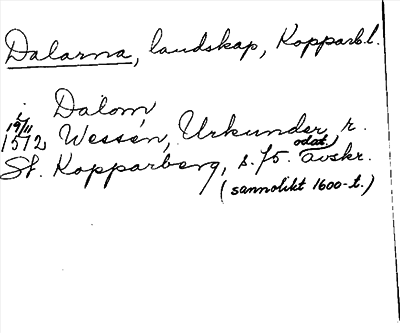 Dalarna, landskap, Kopparb.l.
i Dalom
19/11
1512 Wessén, Urkunder r.
St. Kopparberg, s. 75. odat. avskr.
(sannolikt 1600-t.)